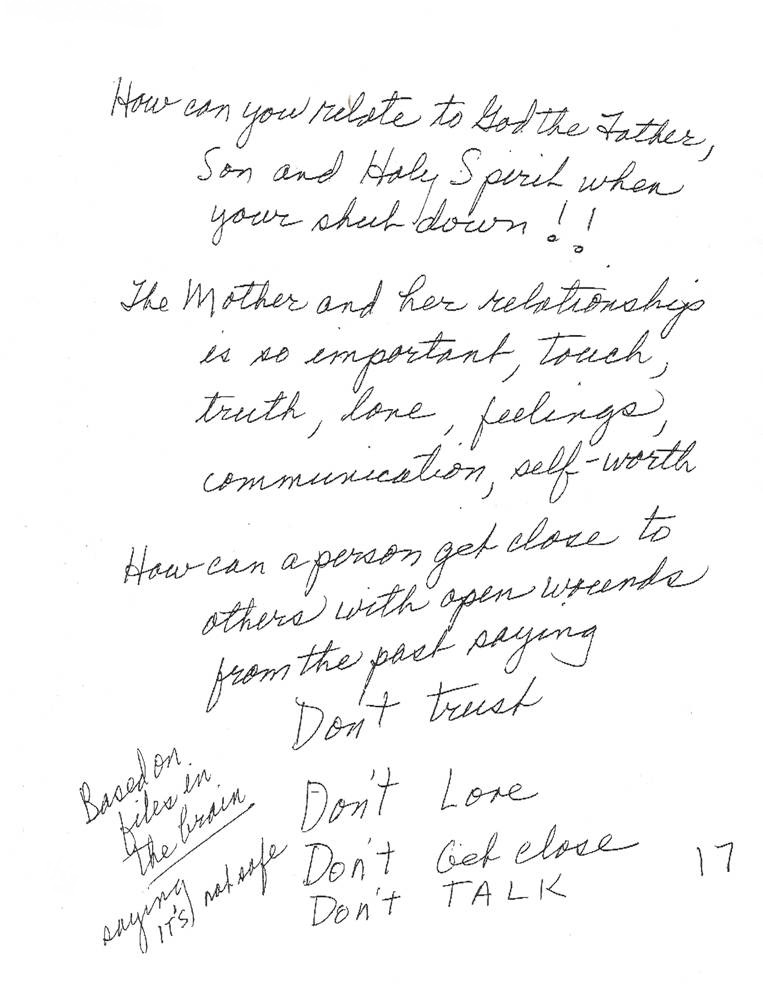 How can you relate to God the Father,
Son and Holy Spirit when
your shut down!!
The Mother and her relationships
is so important, touch,
truth, love, feelings,
communication, self-worth
How can a person get close to
others with open wounds
from the past saying
Don't trust
Don't Love
Don't Get close
Don't TALK
Based on
files in
the brain
saying
IT'S not safe
17